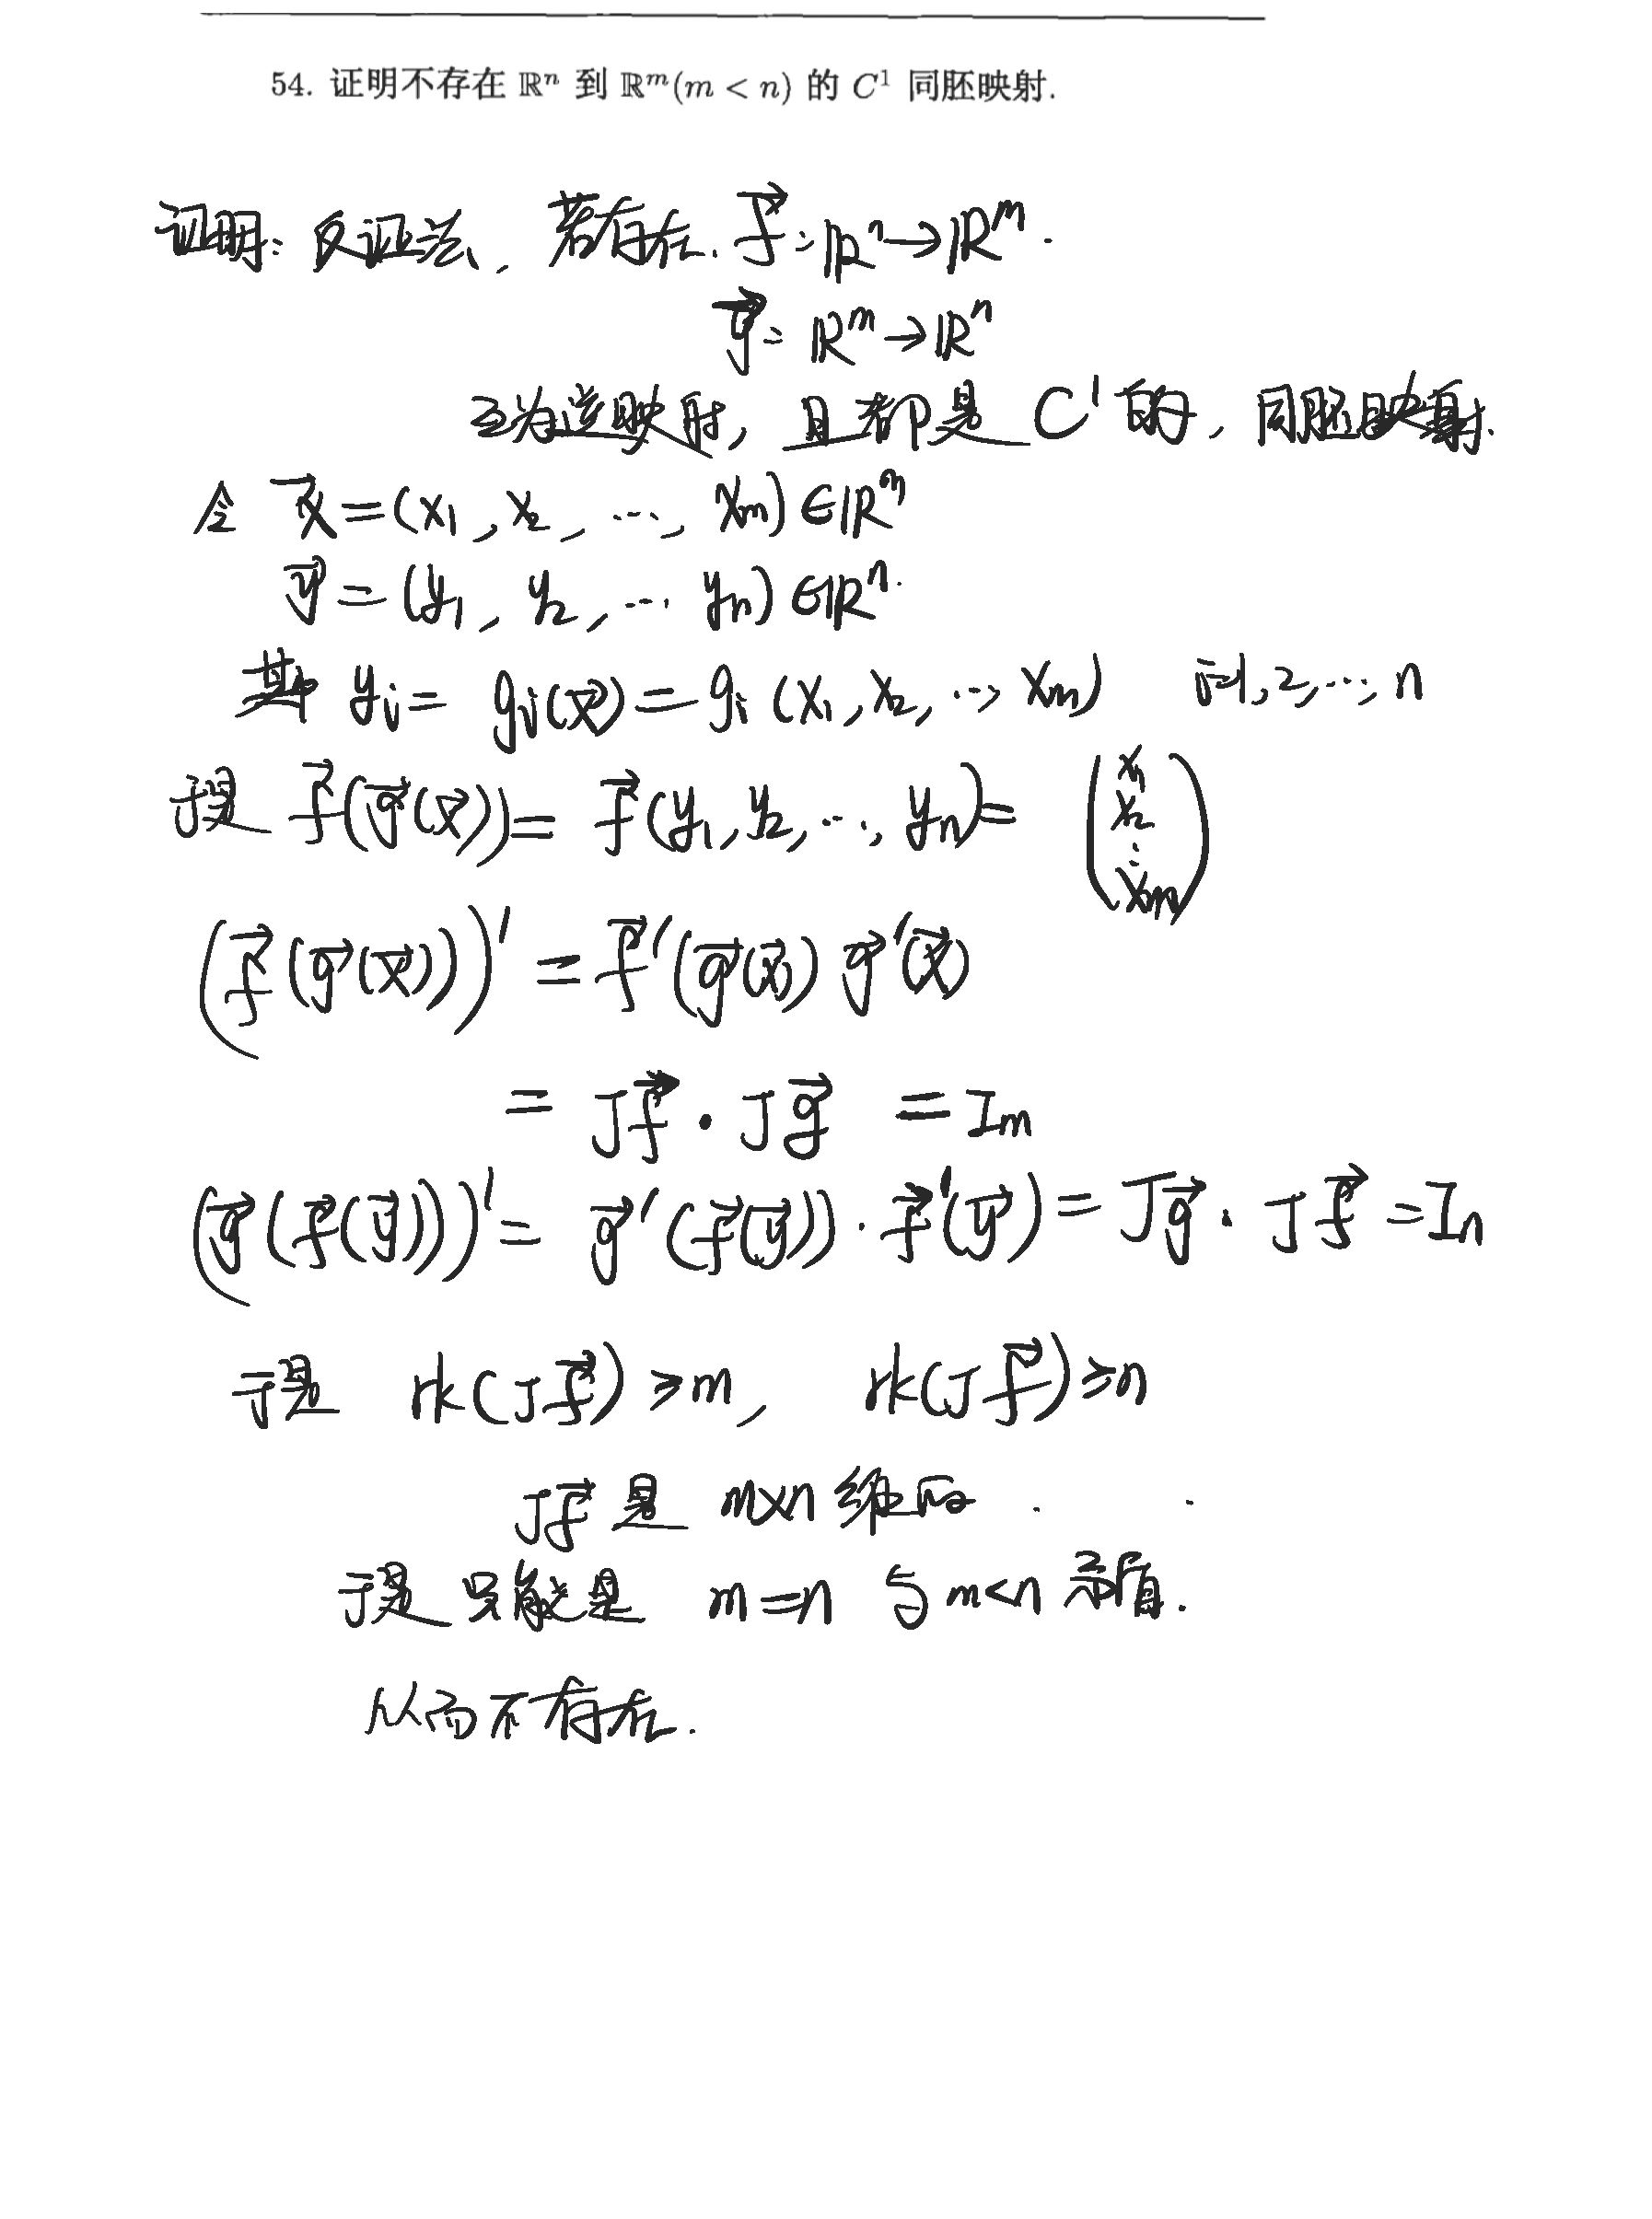 54. 证明不存在 ℝⁿ 到 ℝᵐ(m < n) 的 C¹ 同胚映射.
证明: 反证法, 若存在. f⃗: ℝⁿ→ℝᵐ.
g⃗: ℝᵐ→ℝⁿ
互为逆映射, 且都是 C¹ 的, 同胚映射.
令 x⃗=(x₁, x₂, …, xₘ)∈ℝᵐ
y⃗=(y₁, y₂, … yₙ)∈ℝⁿ.
其中 yᵢ= gᵢ(x⃗)=gᵢ(x₁, x₂, …, xₘ) i=1,2,…,n
于是 f⃗(g⃗(x⃗))= f⃗(y₁, y₂, …, yₙ)= (x₁ x₂ ⋮ xₘ)
(f⃗(g⃗(x⃗)))′ = f⃗′(g⃗(x⃗)) g⃗′(x⃗)
= Jf⃗ · Jg⃗ = Iₘ
(g⃗(f⃗(y⃗)))′= g⃗′(f⃗(y⃗)) · f⃗′(y⃗) = Jg⃗ · Jf⃗ = Iₙ
于是 rk(Jf⃗)≥m, rk(Jf⃗)≥n
Jf⃗ 是 m×n 维的.
于是只能是 m=n 与 m<n 矛盾.
从而不存在.